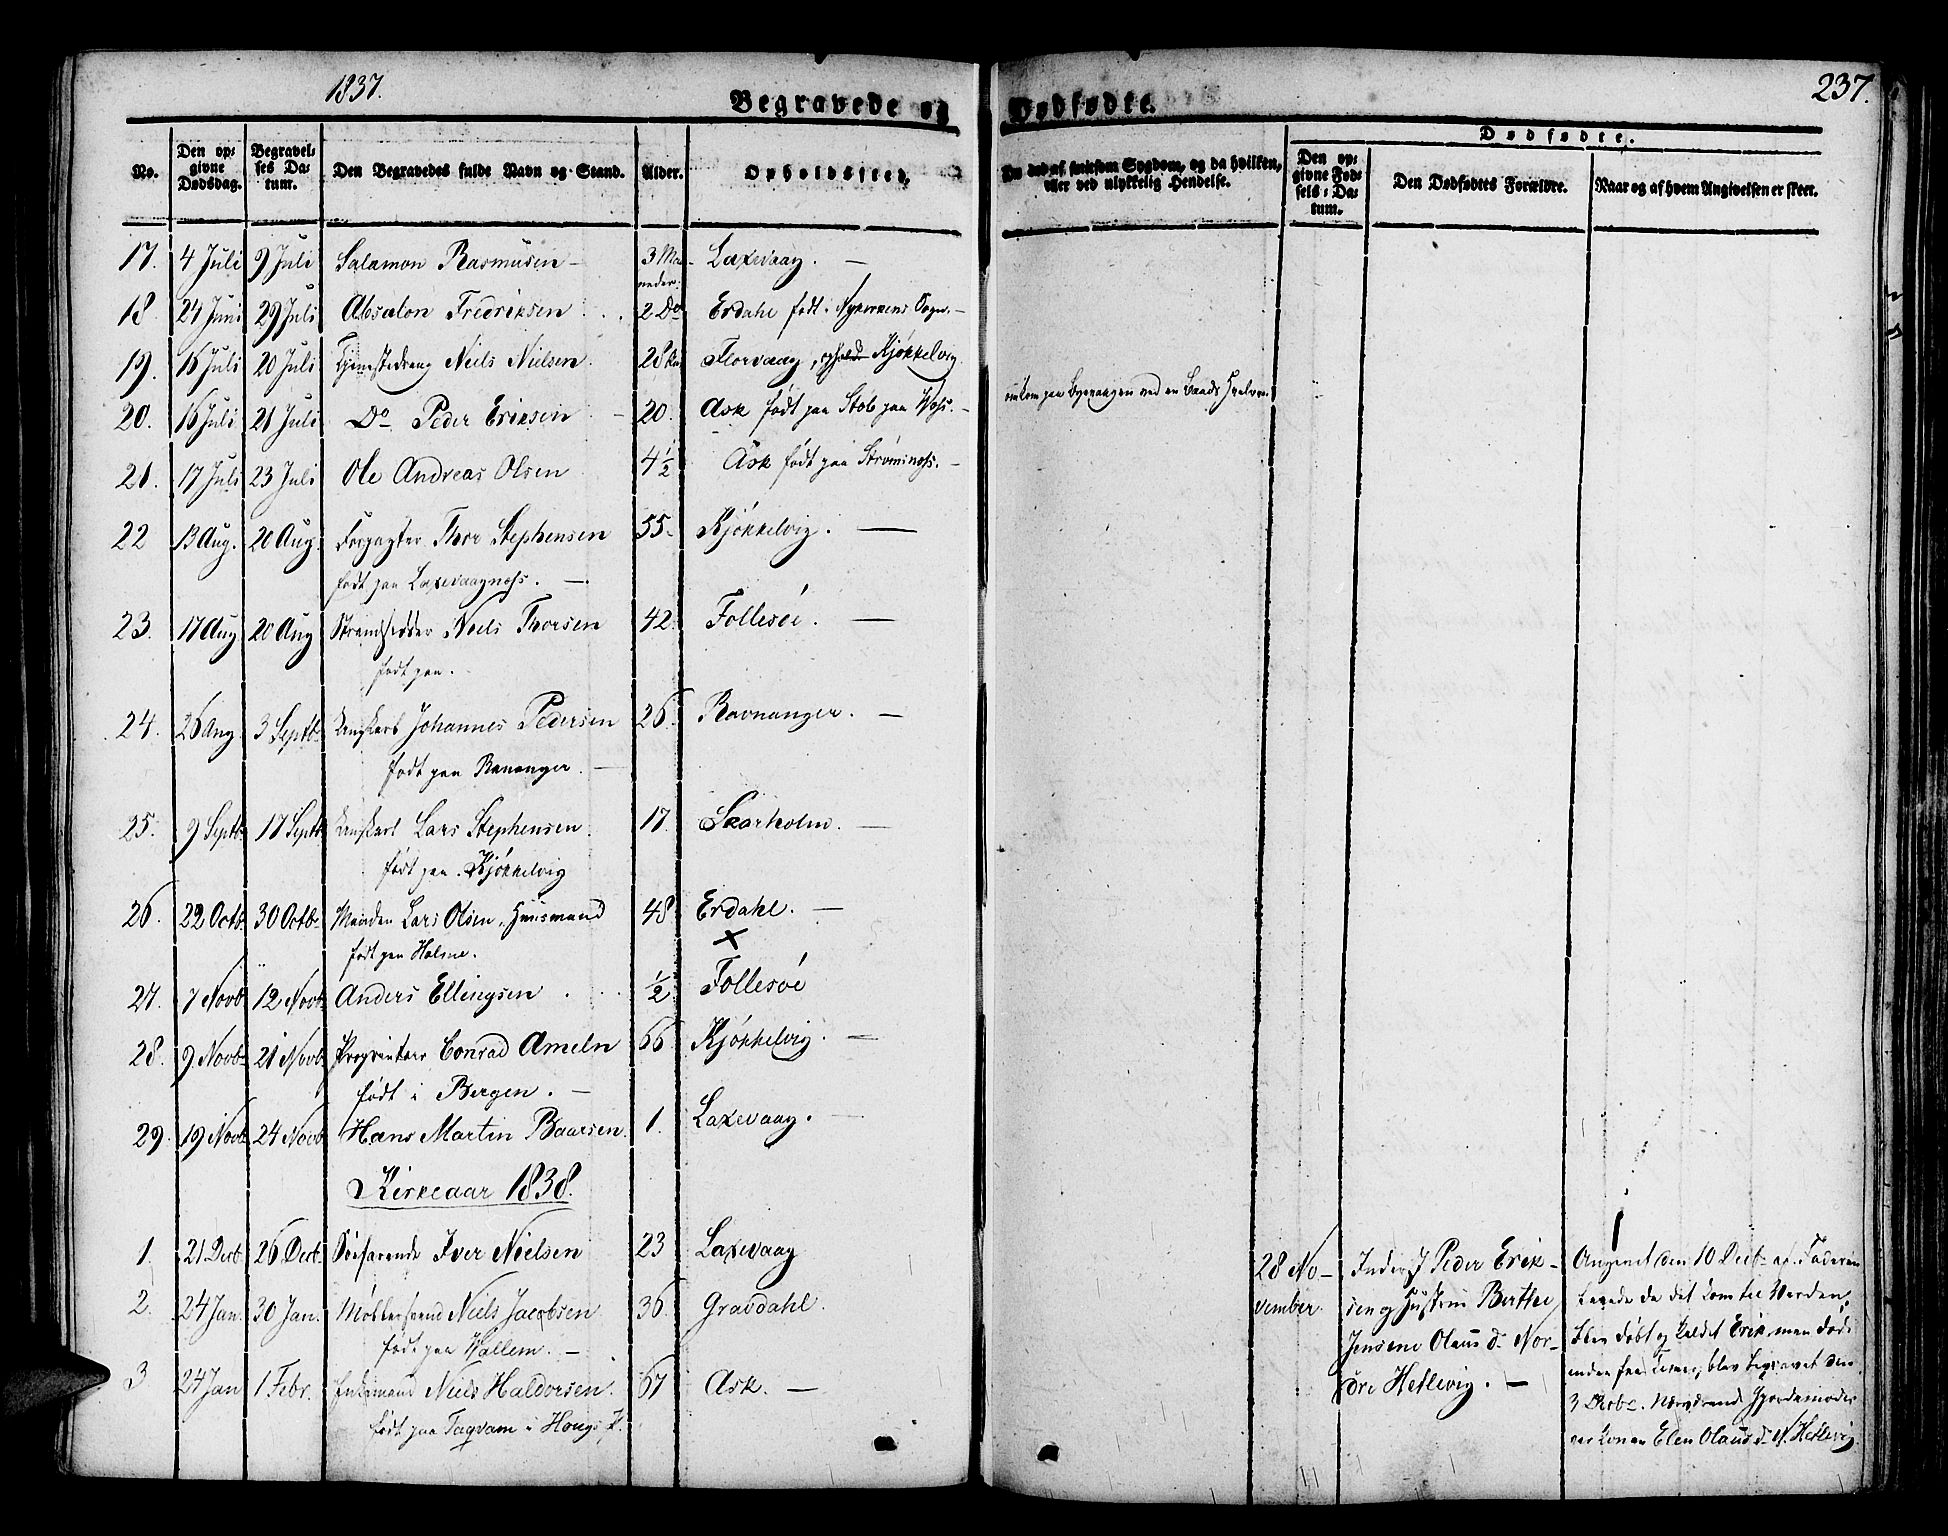 1837.
Begravede og
Dødfødte.
237.
No.
Den op-
givne
Dødsdag.
Begravel-
ses Da-
tum.
Den Begravedes fulde Navn og Stand.
Alder.
Opholdssted.
Om død af smitsom Sygdom, og da hvilken,
eller ved ulykkelig Hendelse.
Dødfødte.
Den op-
givne Fød-
sels-Da-
tum.
Den Dødfødtes Forældre.
Naar og af hvem Angivelsen er skeet.
17. 4 Juli 9 Juli Salamon Rasmusen - 3 Maa- Laxevaag. -
neder.
18 24 Juni 29 Juli Absalon Fredriksen 2 Do Erdahl født i Nykirkens Sogn. -
19. 16 Juli 20 Juli Tjenestedreng Niels Nielsen 28 Florvaag, Kjøkkelvig
20. 16 Juli 21 Juli Do Peder Eriksen - 20. Ask født paa Stob paa Vos. -
omkom paa Byevaagen ved en Baads Hvelven.
21. 17 Juli 23 Juli Ole Andreas Olsen 4½ Ask født paa Strømsnæs. -
22 13 Aug. 20 Aug. Forpagter Thor Stephensen 55. Kjøkkelvig. -
født paa Laxevaagnæs. -
23. 17 Aug 20 Aug Strandsidder Niels Thorsen 42. Follesøe. -
født paa.
24. 26 Aug. 3 Septb. Ungkarl Johannes Pedersen 26. Ravnanger. -
født paa Ravnanger. -
25. 9 Septb. 17 Septb. Ungkarl Lars Stephensen 17. Skarholm. -
født paa Kjøkkelvig
26. 22 Octb. 30 Octb. Manden Lars Olsen, Huusmand 48 Erdahl. -
født paa Holme.
27. 7 Novb 12 Novb. Anders Ellingsen ½ Follesøe
28. 9 Novb. 21 Novb. Proprietair Conrad Ameln 66 Kjøkkelvig. -
født i Bergen. -
29. 19 Novb. 24 Novb Hans Martin Baarsen. 1. Laxevaag. -
Kirkeaar 1838.
1. 21 Decb. 26 Decb. Søefarende Iver Nielsen 23 Laxevaag
2. 24 Jan. 30 Jan. Møllersvend Niels Jacobsen 36. Gravdahl.
født paa Hallem. -
3 24 Jan 1 Febr. Inderst Niels Haldorsen. 67 Ask. -
født paa Tagvam i Hougs P.
1
28 No-
vember.
Inderst Peder Erik-
sen og Hustru Berthe
Jensine Olaus d. Nor-
dre Hetlevig. -
Angivet den 10 Decb. af Faderen
levede da det kom til Verden,
blev døbt og kaldet Erik, men døde
3 Decb. Nærværende Gjordemoder
var Konen Elen Olaus d. N. Hetlevig